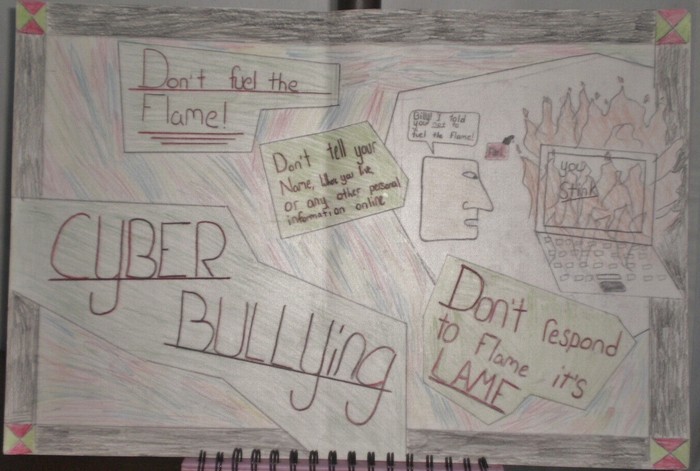 Don't fuel the
Flame!
Don't tell your
Name, where you live
or any other personal
information online
Billy I told
you not to
fuel the flame!
Fuel
you
Stink
CyBER
BULLying
Don't respond
to Flame it's
LAME